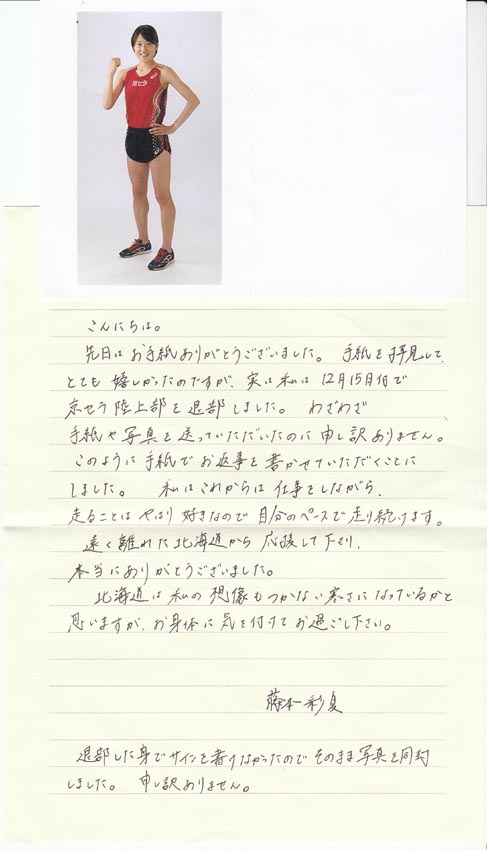 京セラ
こんにちは。
先日はお手紙ありがとうございました。 手紙を拝見して、
とても嬉しかったのですが、実は私は12月15日付で
京セラ陸上部を退部しました。 わざわざ
手紙や写真を送っていただいたのに申し訳ありません。
このように手紙でお返事を書かせていただくことに
しました。 私はこれからは仕事をしながら、
走ることはやはり好きなので自分のペースで走り続けます。
遠く離れた北海道から応援して下さり、
本当にありがとうございました。
北海道は私の想像もつかない寒さになっているかと
思いますが、お身体に気を付けてお過ごし下さい。
藤本彩夏
退部した身でサインを書けなかったのでそのまま写真を同封
しました。 申し訳ありません。